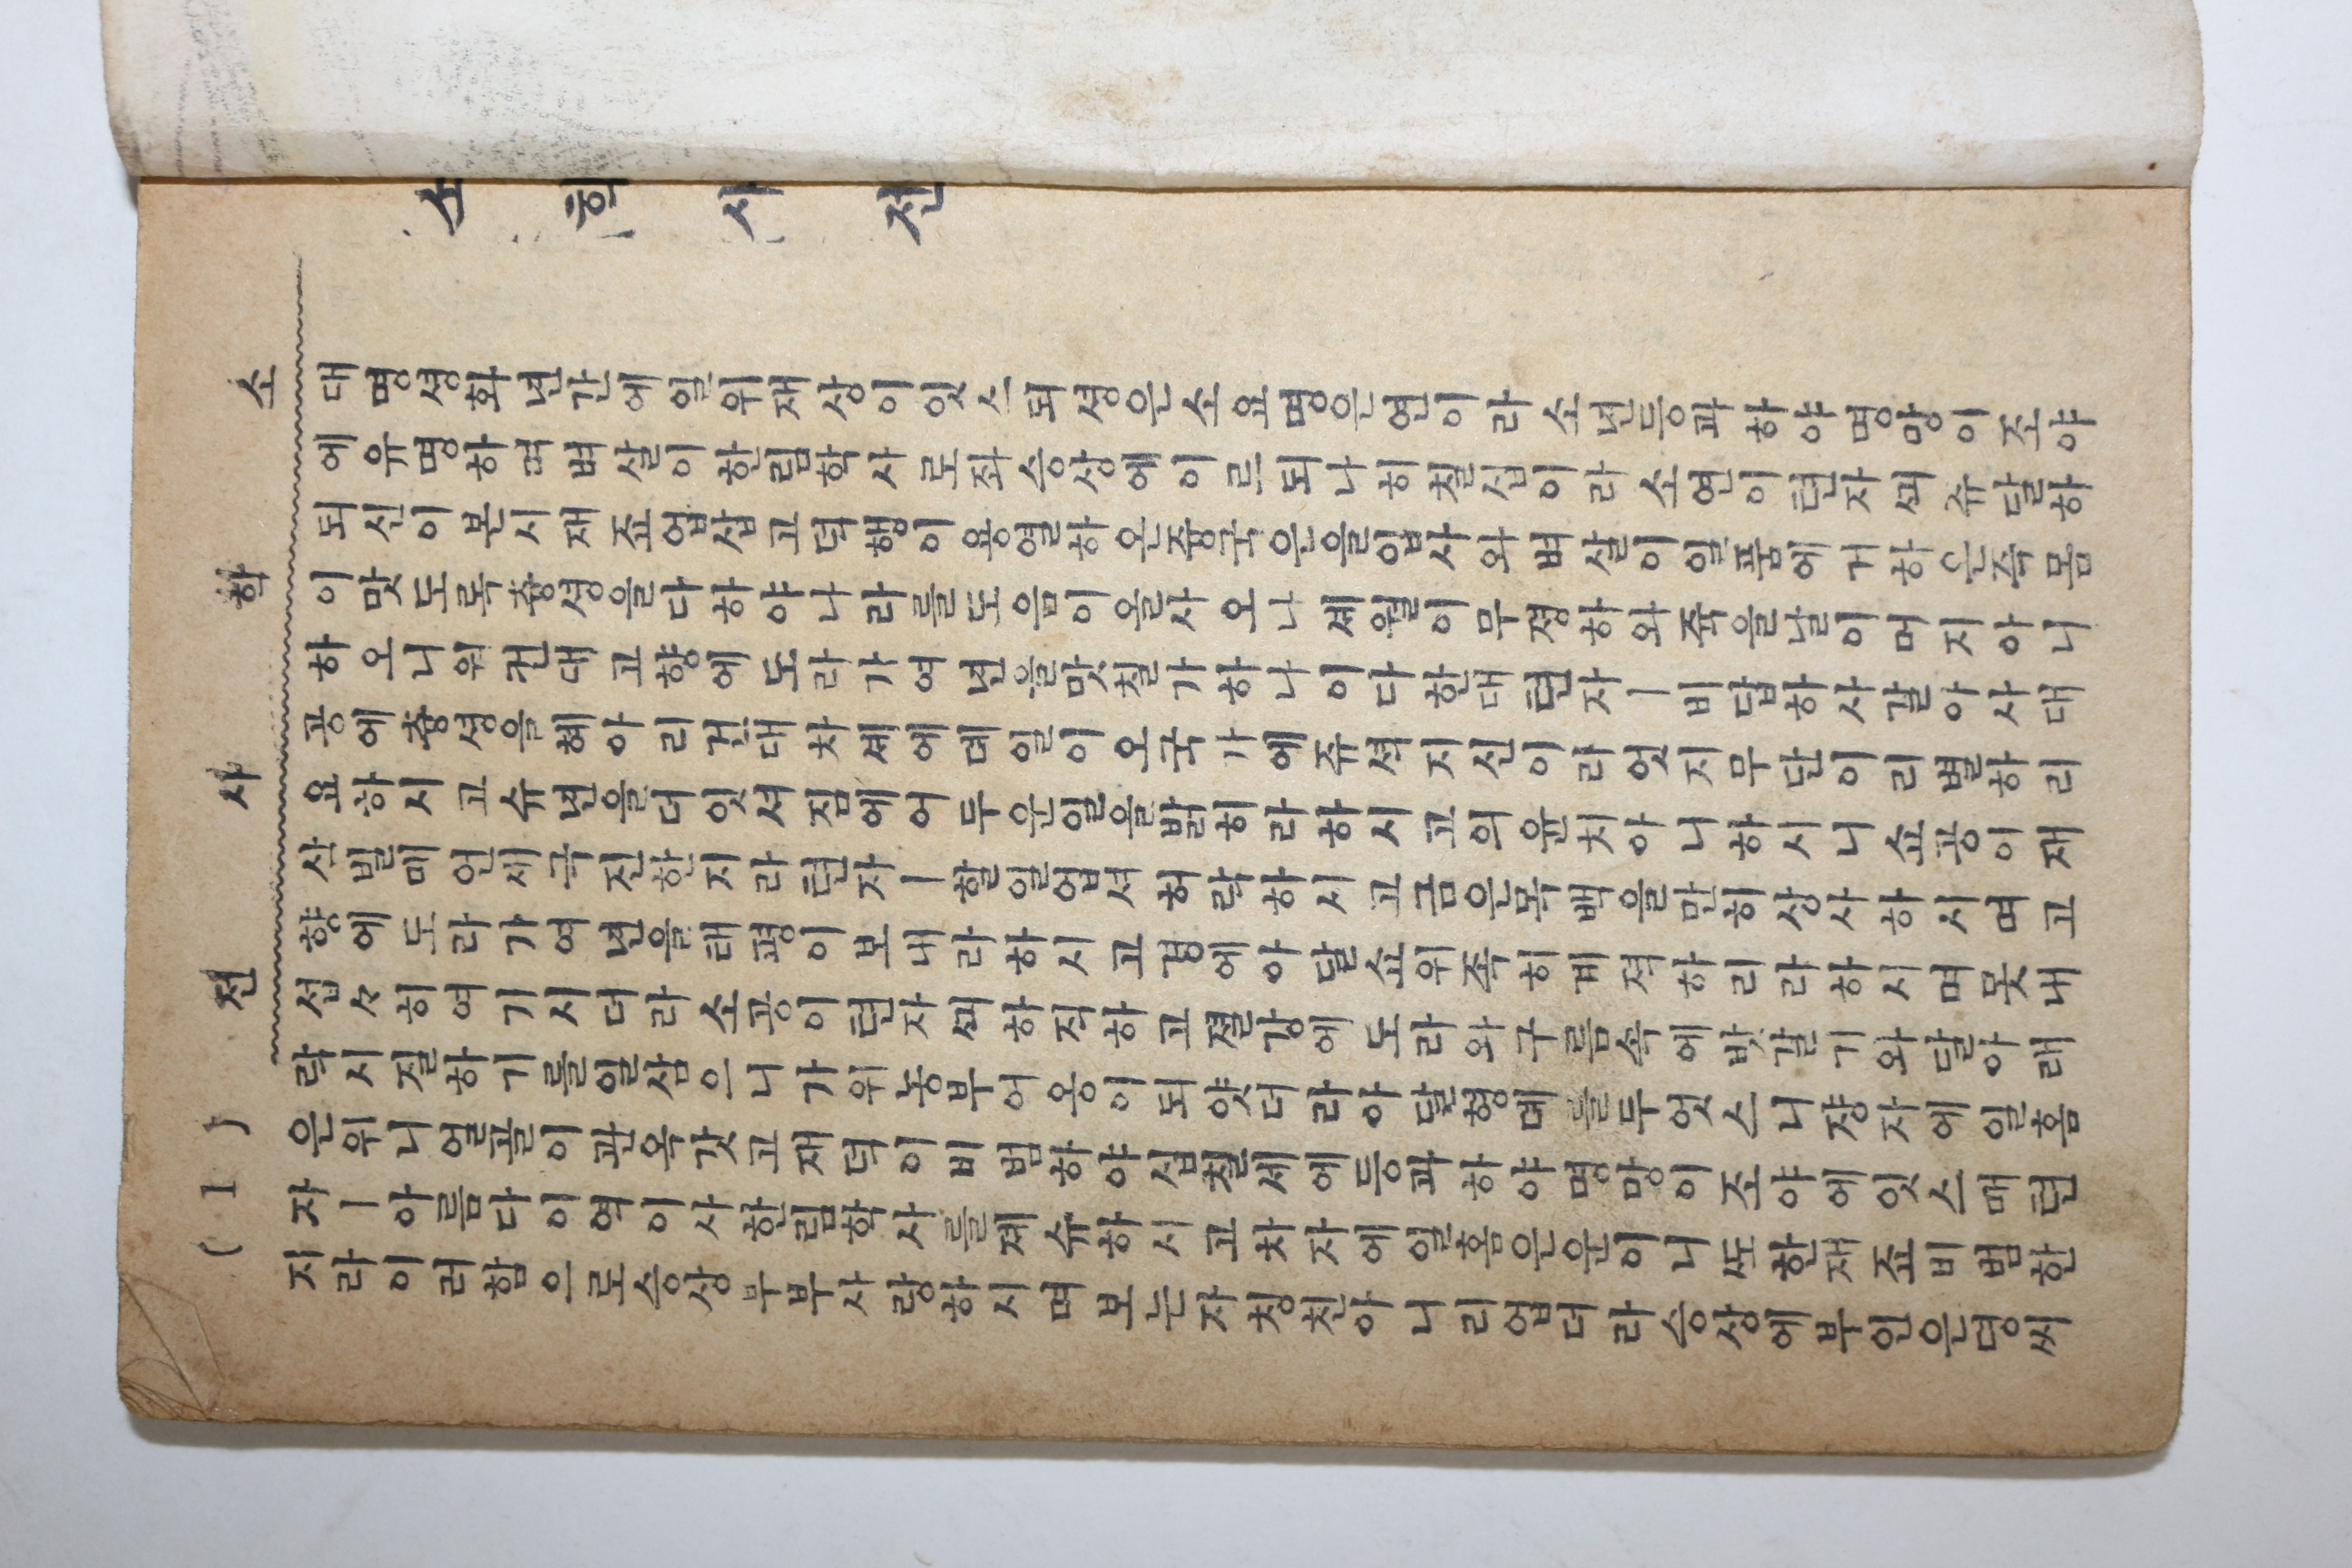 소학사전
대명성화년간에일위재상이잇스되성은소요명은연이라소년등과하야명망이조야
에유명하며벼살이한림학사로좌승상에이르되나히칠십이라소연이텬자ᄭᅴ슈달하
되신이본시재죠업삽고덕행이용열하온즁국은을입사와벼살이일품에거하온즉몸
이맛도록츙셩을다하야나라를도음이올사오나셰월이무졍하와쥭을날이머지아니
하오니워컨대고향에도라가여년을맛칠가하나이다한대텬자ㅣ비답하사갈아사대
공에츙셩을혜아리건대차셰에뎨일이오국가에쥬셕지신이라엇지무단이리별하리
요하시고슈년을더잇셔짐에어두운일을밝히라하시고의윤치아니하시니쇼공이재
산빌매언셰극진한지라텬자ㅣ할일업셔허락하시고금은목백을만히상사하시며고
향에도라가여년을태평이보내라하시고경에아달쇼위족히계젹하리라하시며못내
섭々히여기시더라소공이텬자ᄭᅴ하직하고졀강에도라와구름속에밧갈기와달아래
락시질하기를일삼으니가위농부어옹이되얏더라아달형뎨를두엇스니쟝자에일홈
은위니얼골이관옥갓고재덕이비범하야십칠셰에등과하야명망이조야에잇스매텬
자ㅣ아름다이역이사한림학사를졔슈하시고차자에일홈은운이니ᄯᅩ한재죠비범한
지라이러함으로승상부부사랑하시며보는자칭찬아니리업더라승상에부인은뎡씨
소학사전
(1)